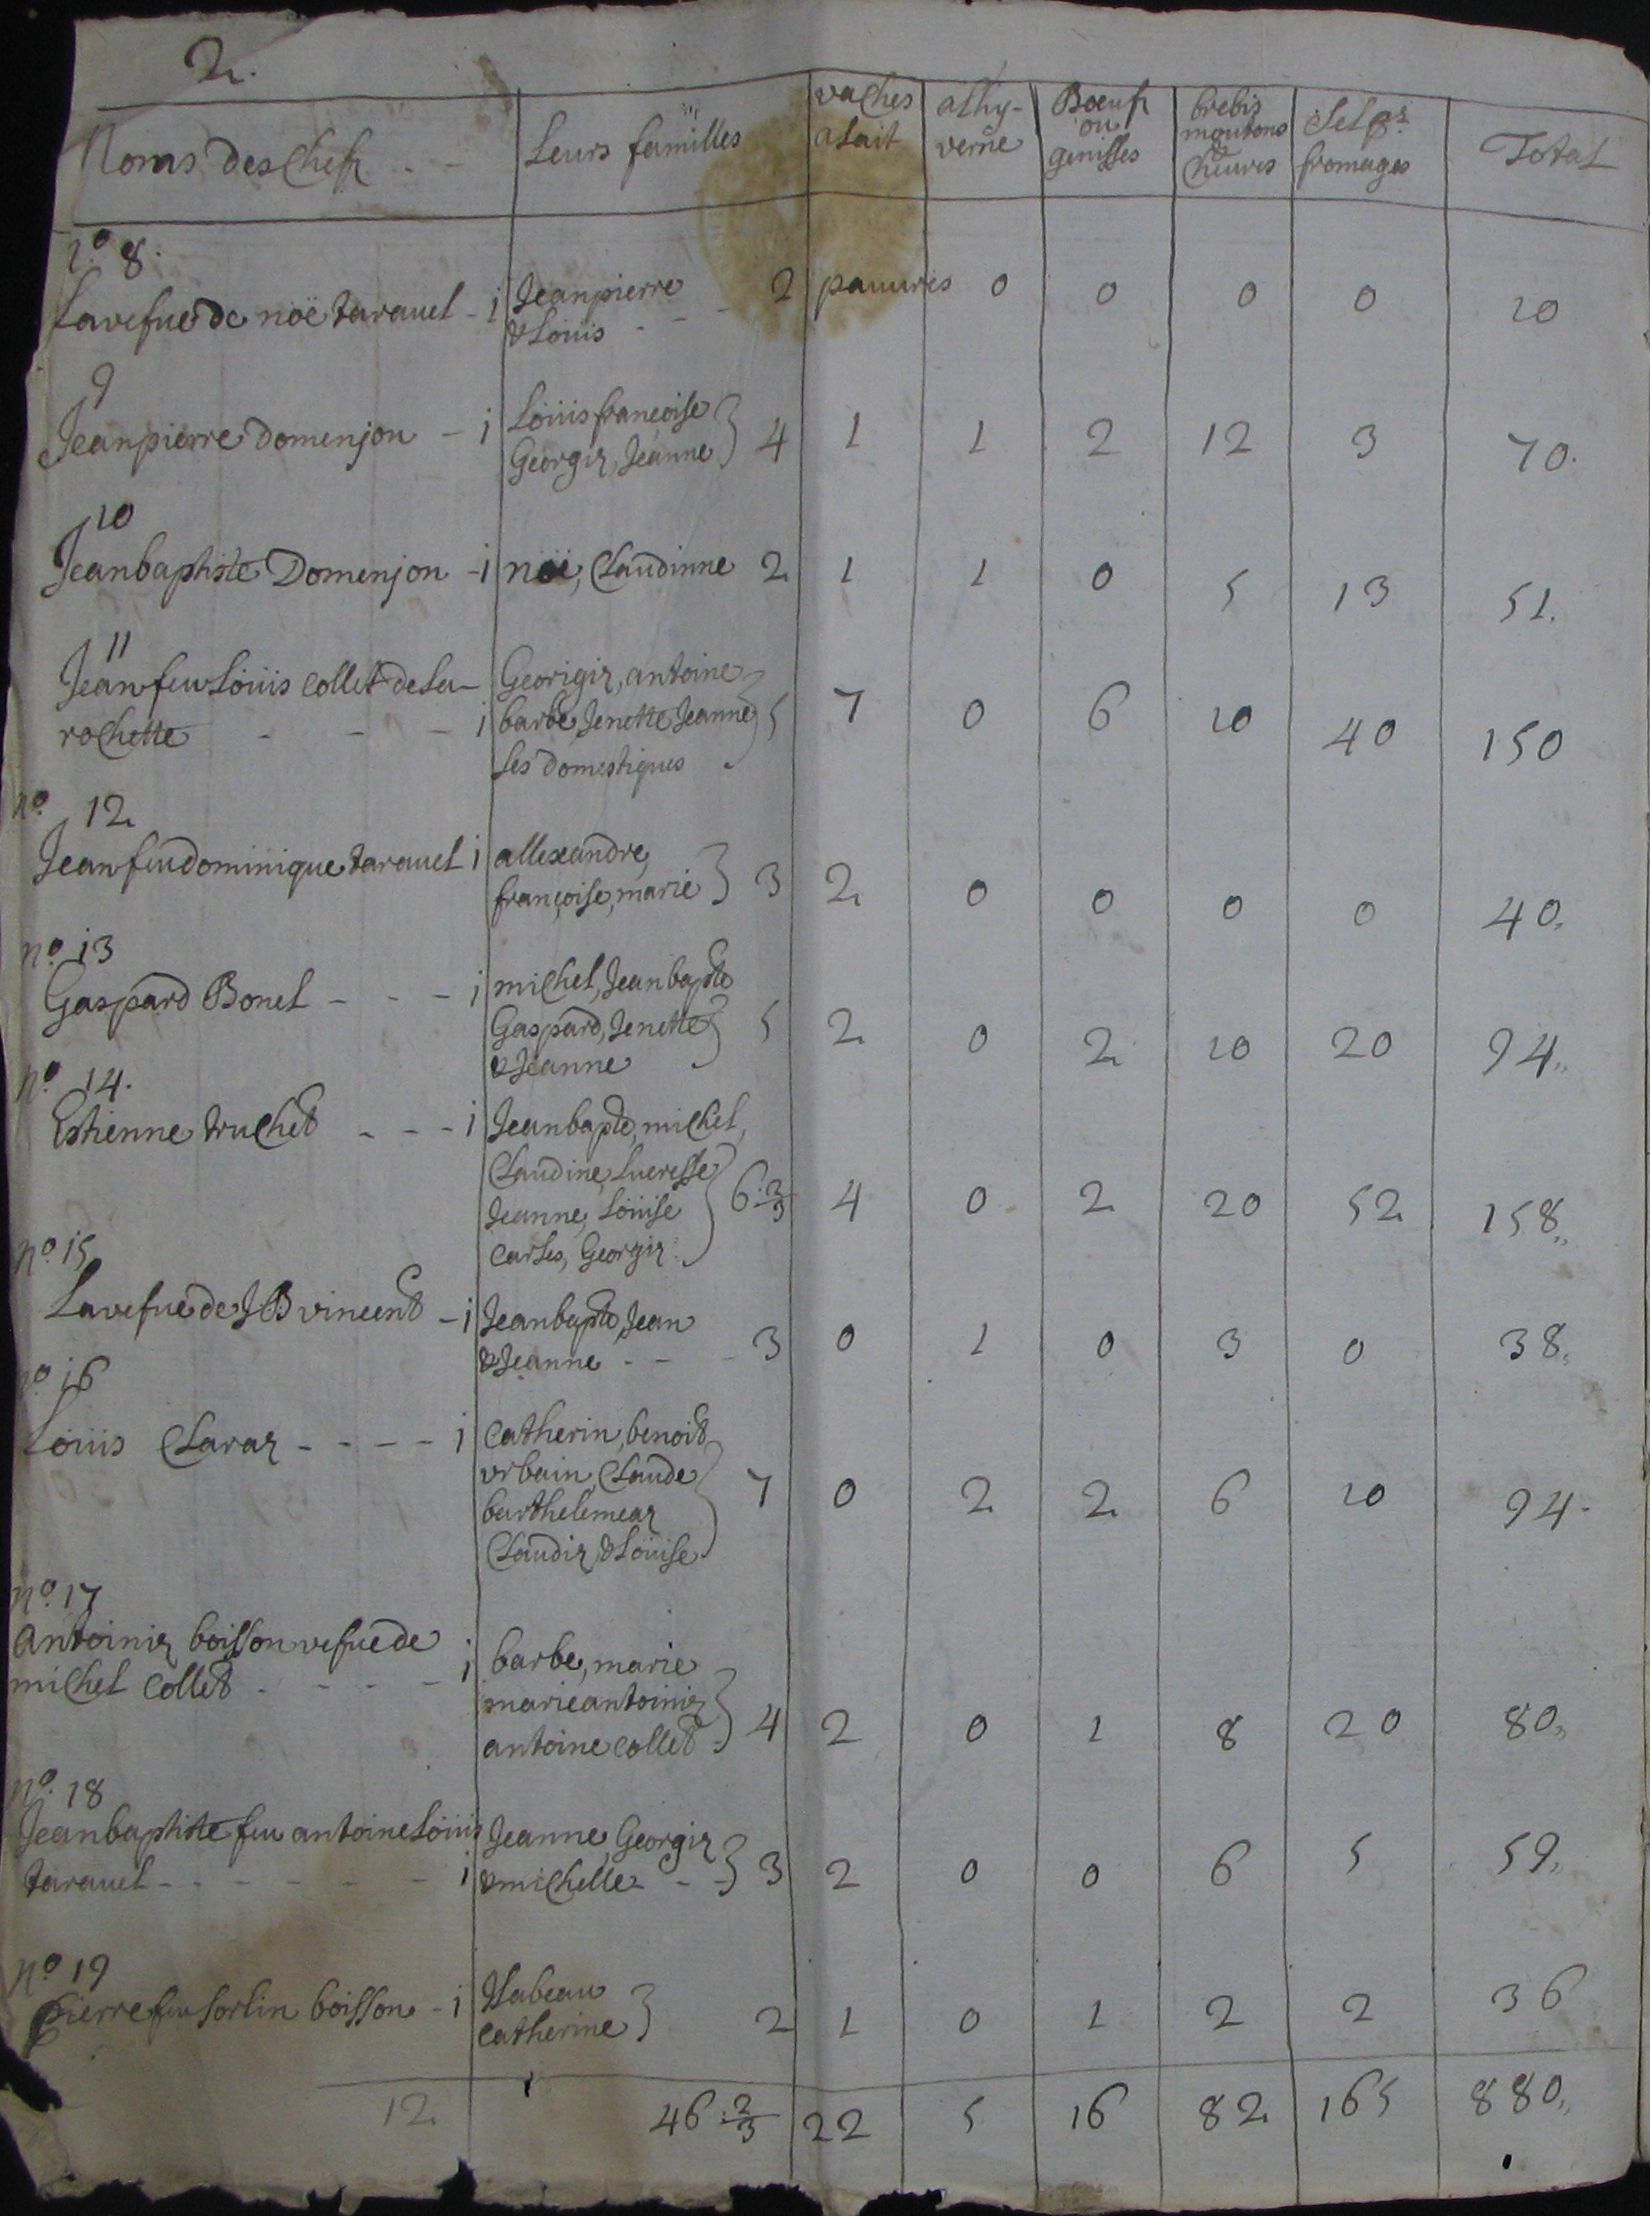 2.
Noms des Chefs - - Leurs familles vaches alait alhy-verne Boeufs ou genisses brebis moutons chèures Sel pr. fromages Total
no. 8.
La vefue de noë taravel - i Jeanpierre & Loüis - - - 2 pauures 0 0 0 0 10
9
Jeanpierre Domenjon - i Loüis françoise Georgiz, Jeanne } 4 1 1 2 12 3 70.
10
Jeanbaptiste Domenjon - i noë, Claudinne 2 1 1 0 5 13 51.
11
Jean feu Loüis Collet dela-
rochette - - - i Georigiz, antoine barbe Jenette Jeanne Ses domestiques } 5 7 0 6 10 40 150
no. 12
Jean feu dominique taravel i allexandre, françoise, marie } 3 2 0 0 0 0 40.
no. i3
Gaspard Bonel - - - i michel, Jean bapte Gaspard, Jenette & Jeanne } 5 2 0 2 10 20 94.
no. 14.
Estienne truchet - - - i Jean bapte, michel, Claudine, Lucresse Jeanne, Loüise Carles, Georgiz } 6. 2/3 4 0 2 20 52 158.
no. i5
La vefue de J B vincent - i Jean bapte, Jean & Jeanne - - - 3 0 1 0 3 0 38.
no. i6
Loüis Claraz - - - - i Catherin, benoit vrbain, Claude barthelemeaz Claudiz & Loüise } 7 0 2 2 6 10 94.
no. 17
antoiniz boisson vefue de
michel Collet - - - - i barbe, marie marie antoiniz antoine Collet } 4 2 0 1 8 20 80.
no. 18
Jean baptiste feu antoine Loüis
taravel - - - - - i Jeanne, Georgiz & michelle - - } 3 2 0 0 6 5 59.
no. 19
pierre feu sorlin boisson - i Ysabeau Catherine } 2 1 0 1 2 2 36
12 46. 2/3 22 5 16 82 165 880.